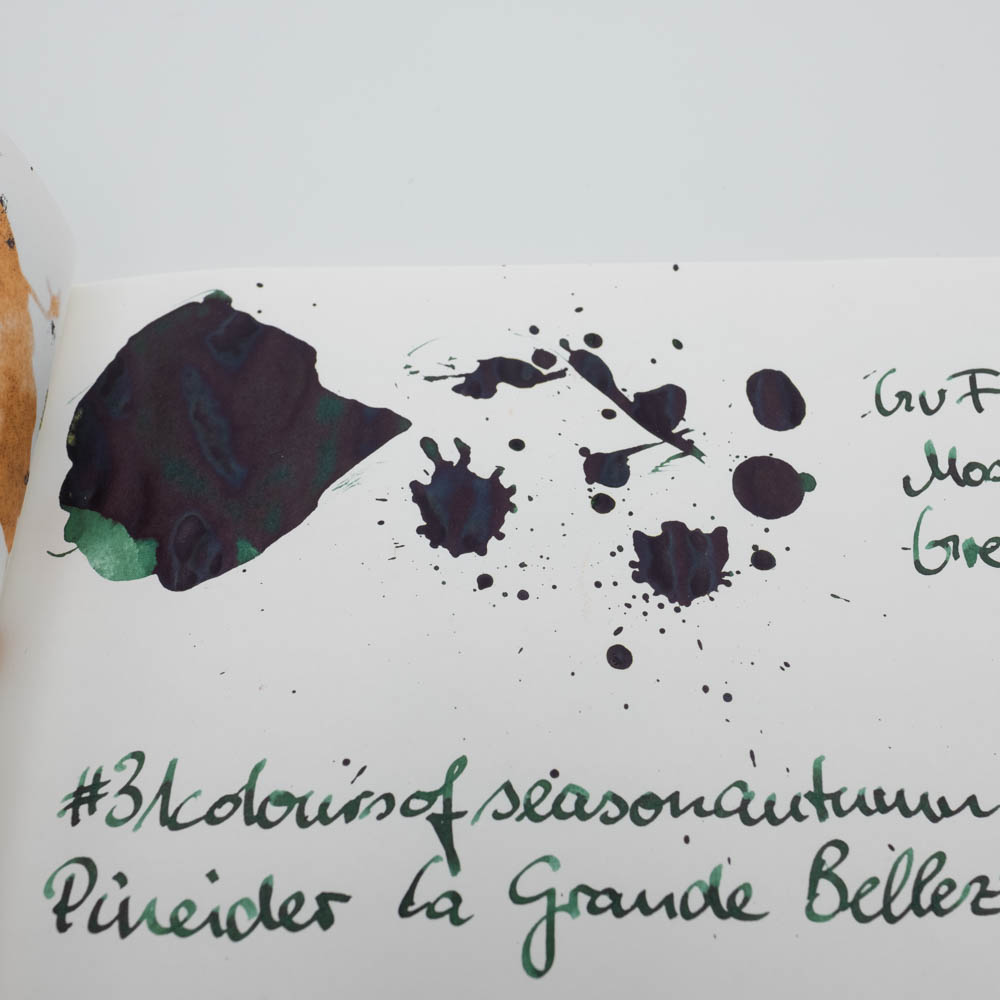 GvF
Mos
Gre
#31coloursofseasonautumn
Pineider La Grande Bellez